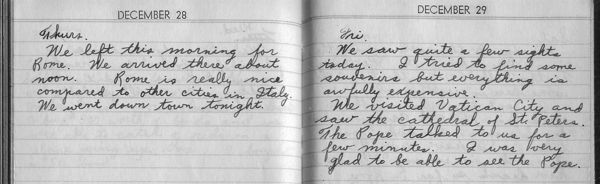 DECEMBER 28
Thurs.
We left this morning for
Rome. We arrived there about
noon. Rome is really nice
compared to other cities in Italy.
We went down town tonight.
DECEMBER 29
Fri.
We saw quite a few sights
today. I tried to find some
souvenirs but everything is
awfully expensive.
We visited Vatican City and
saw the cathedral of St. Peters.
The Pope talked to us for a
few minutes. I was very
glad to be able to see the Pope.